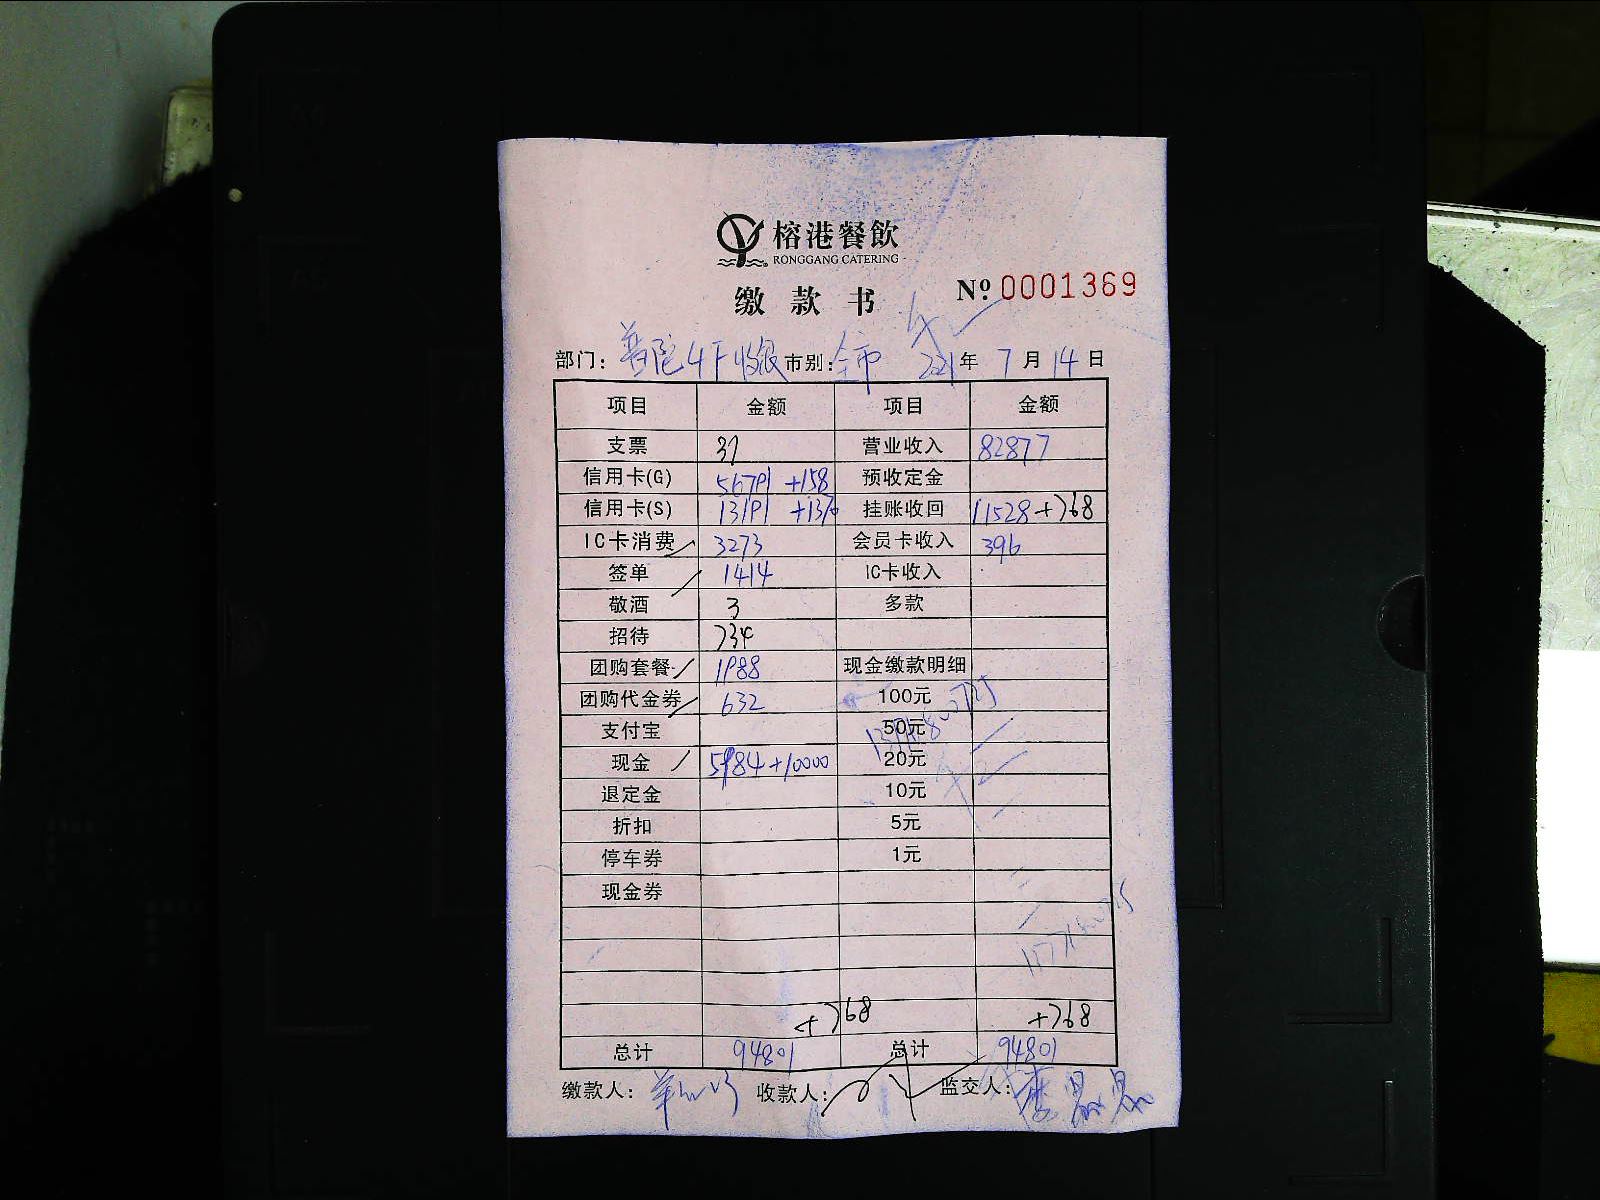 榕港餐飲
RONGGANG CATERING
缴款书 Nº 0001369
部门: 普陀4F收银 市别: 全市 2021年 7月 14日
项目 金额 项目 金额
支票 37 营业收入 82877
信用卡(G) 56791 +158 预收定金
信用卡(S) 13191 +1370 挂账收回 11528+768
IC卡消费 3273 会员卡收入 396
签单 1414 IC卡收入
敬酒 3 多款
招待 734
团购套餐 1988 现金缴款明细
团购代金券 632 100元
支付宝 50元
现金 5984+10000 20元
退定金 10元
折扣 5元
停车券 1元
现金券
+768 +768
总计 94801 总计 94801
缴款人: 收款人: 监交人: